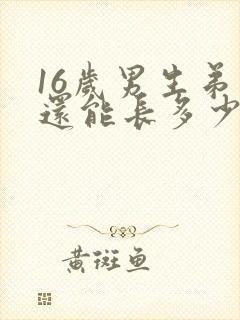 16歲男生弟
還能長多少
黃斑魚